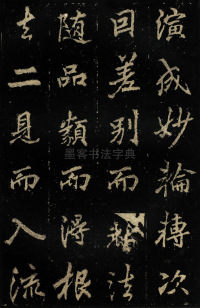 演成妙輪轉次
回差別而法
随品類而得根
去二見而入流
墨客书法字典